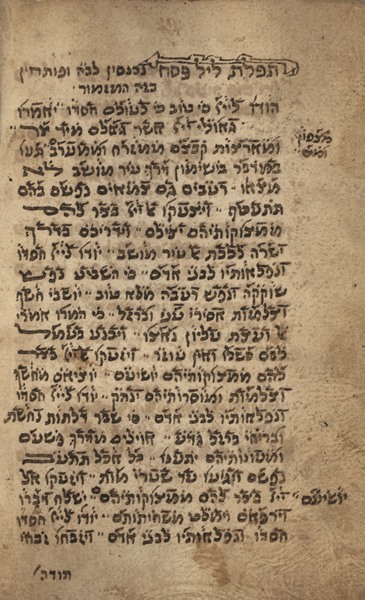 תפלת ליל פסח נכנסין לב״ה ופותחין
בזה המזמור
הודו לייי כי טוב כי לעולם חסדו ׃ יאמרו
גאולי ייי אשר גאלם מיד צר ׃
ומארצות קבצם ממזרח וממערב תעו
מצפון
ומים
במדבר בישימון דרך עיר מושב לא
מצאו ׃ רעבים גם צמאים נפשם בהם
תתעטף ׃ ויצעקו אל ייי בצר להם
ממצוקותיהם יצילם ׃ וידריכם בדרך
ישרה ללכת אל עיר מושב ׃ יודו לייי חסדו
ונפלאותיו לבני אדם ׃ כי השביע נפש
שוקקה ונפש רעבה מלא טוב ׃ יושבי חשך
וצלמות אסירי עני וברזל ׃ כי המרו אמרי
אל ועצת עליון נאצו ׃ ויכנע בעמל
לבם כשלו ואין עוזר ׃ ויזעקו אל ייי בצר
להם ממצוקותיהם יושיעם ׃ יוציאם מחשך
וצלמות ומוסרותיהם ינתק ׃ יודו לייי חסדו
ונפלאותיו לבני אדם ׃ כי שבר דלתות נחשת
ובריחי ברזל גדע ׃ אוילים מדרך פשעם
ומעונותיהם יתענו ׃ כל אכל תתעב
נפשם ויגיעו עד שערי מות ׃ ויזעקו אל
ייי בצר להם ממצוקותיהם ישלח דברו
יושיעם ׃
וירפאם וימלט משחיתותם ׃ יודו לייי חסדו
ונפלאותיו לבני אדם ׃ ויזבחו זבחי
תודה